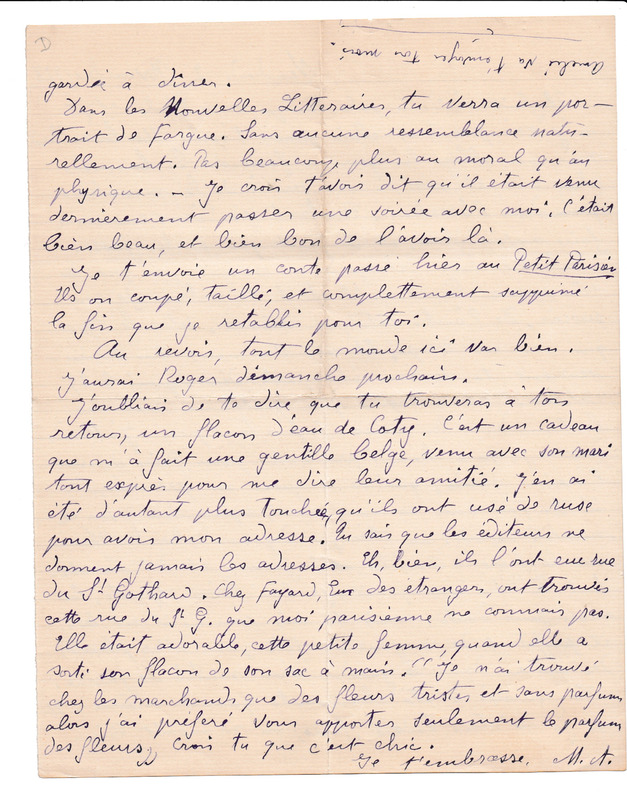 D
Amélie va t'envoyer ton mois.
gardée à diner.
Dans les Nouvelles Litteraires, tu verra un por-
trait de Fargue. Sans aucune ressemblance natu-
rellement. Pas beaucoup plus au moral qu'au
physique. — Je crois t'avois dit qu'il était venu
dernièrement passer une soirée avec moi. C'était
bien beau, et bien bon de l'avoir là.
Je t'envoie un conte passé hier au Petit Parisien
Ils on coupé, taillé, et complettement supprimé
la fin que je retablis pour toi.
Au revoir, tout le monde ici va bien.
J'aurai Roger dimanche prochain.
J'oubliais de te dire que tu trouveras à ton
retour, un flacon d'eau de Coty. C'est un cadeau
que m'à fait une gentille belge, venu avec son mari
tout exprès pour me dire leur amitié. J'en ai
été d'autant plus touchée, qu'ils ont usé de ruse
pour avoir mon adresse. Tu sais que les éditeurs ne
donnent jamais les adresses. Eh, bien, ils l'ont eue rue
du St Gothard. Chez Fayard, Eux des étrangers, ont trouvés
cette rue du St G. que moi parisienne ne connais pas.
Elle était adorable, cette petite femme, quand elle a
sorti son flacon de son sac à main. "Je n'ai trouvé
chez les marchands que des fleurs tristes et sans parfum
alors j'ai préféré vous apporter seulement le parfum
des fleurs," Crois tu que c'est chic.
Je t'embrasse. M. A.